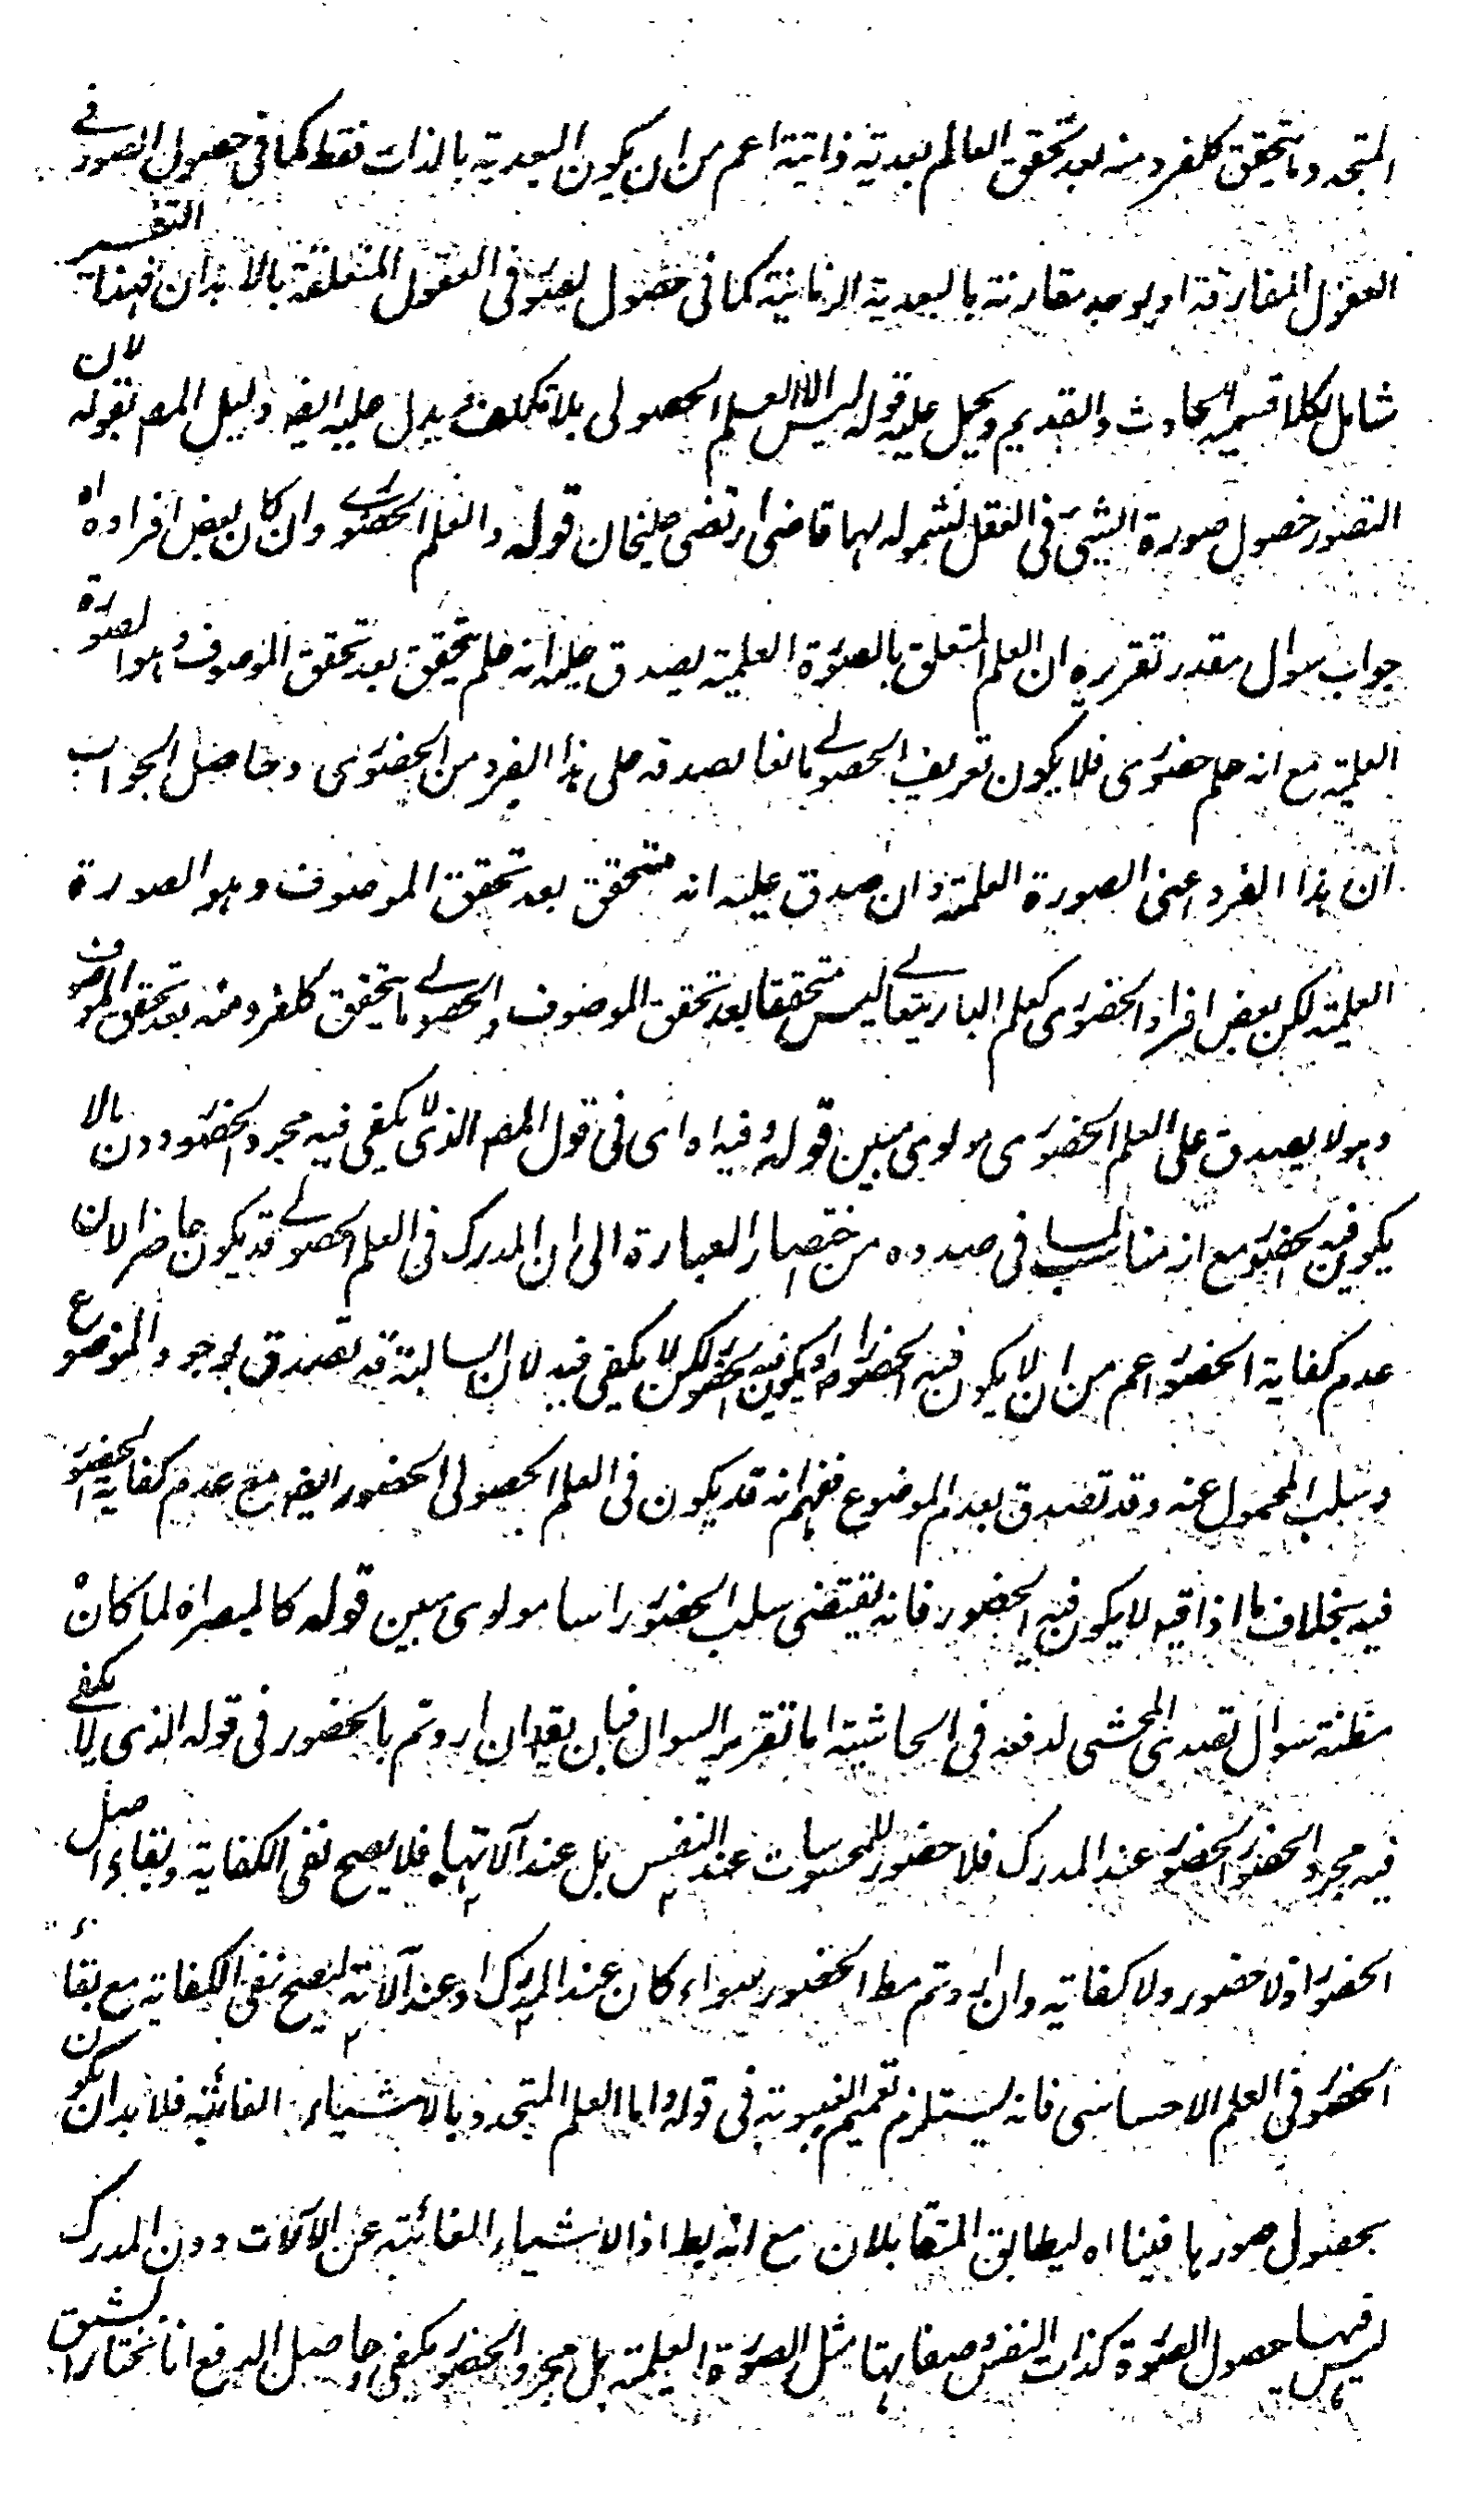 المتجدد ما يتحقق كلفرد منه بعد تحقق العالم بعدية ذاتية اعم من ان يكون البعدية بالذات فقط كما فى حصول الصور فى
العقول المفارقة او يوجد مقارنة بالبعدية الزمانية كما فى حصول الصور فى العقول المتعلقة بالابدان فهذا التفسير
شامل لكلا قسميه الحادث والقديم ويحمل عليه قوله ليس الا العلم الحصولى بلا تكلف ويدل عليه ايض دليل المص بقوله لان
التصور حصول صورة الشيئ فى العقل لشموله لهما قاضى ارتضى عليخان قوله والعلم الحضورى وان كان بعض افراده اه
جواب سوال مقدر تقريره ان العلم المتعلق بالصورة العلمية يصدق عليه انه علم يتحقق بعد تحقق الموصوف وهو الصورة
العلمية مع انه علم حضورى فلا يكون تعريف الحصولى مانعا لصدقه على هذا الفرد من الحضورى وحاصل الجواب
ان هذا الفرد اعنى الصورة العلمية وان صدق عليه انه متحقق بعد تحقق الموصوف وهو الصورة
العلمية لكن بعض افراد الحضورى كعلم البارى تعالى ليس متحققا بعد تحقق الموصوف والحصولى ما يتحقق كلفرد منه بعد تحقق الموصوف
وهو لا يصدق على العلم الحضورى مولوى مبين قوله وفيه اه اى فى قول المص الذى لا يكفى فيه مجرد الحضور دون مالا
يكون فيه الحضور مع انه مناسب لما فى صدده من اختصار العبارة الى ان المدرك فى العلم الحصولى قد يكون حاضرا لان
عدم كفاية الحضور اعم من ان لا يكون فيه الحضور او يكون فيه الحضور لكن لا يكفى فيه لان السالبة قد تصدق بوجود الموضوع
وسلب المحمول عنه وقد تصدق بعدم الموضوع ففهم انه قد يكون فى العلم الحصولى الحضور ايض مع عدم كفاية الحضور
فيه بخلاف ما اذا قيل لا يكون فيه الحضور فانه يقتضى سلب الحضور راسا مولوى مبين قوله كالمبصر اه لما كان
مظنة سوال تصدى المحشى لدفعه فى الحاشية اما تقرير السوال فبان يقال ان اردتم بالحضور فى قوله الذى لا يكفى
فيه مجرد الحضور الحضور عند المدرك فلا حضور للمحسوسات عند النفس بل عند آلاتها فلا يصح نفى الكفاية وبقاء اصل
الحضور اذ لا حضور ولا كفاية وان اردتم مط الحضور سواء كان عند المدرك او عند آلاته ليصح نفى الكفاية مع بقاء
الحضور فى العلم الاحساسى فانه يستلزم تعميم الغيبوبة فى قوله واما العلم المتجدد بالاشياء الغائبة فلا بد ان يكون
بحصول صورها فينا اه ليطابق المتقابلان مع انه بط اذ الاشياء الغائبة عن الآلات دون المدرك
ليس فيها حصول الصورة كذات النفس وصفاتها مثل الصورة العلمية بل مجرد الحضور يكفى وحاصل الدفع انا نختار الشق